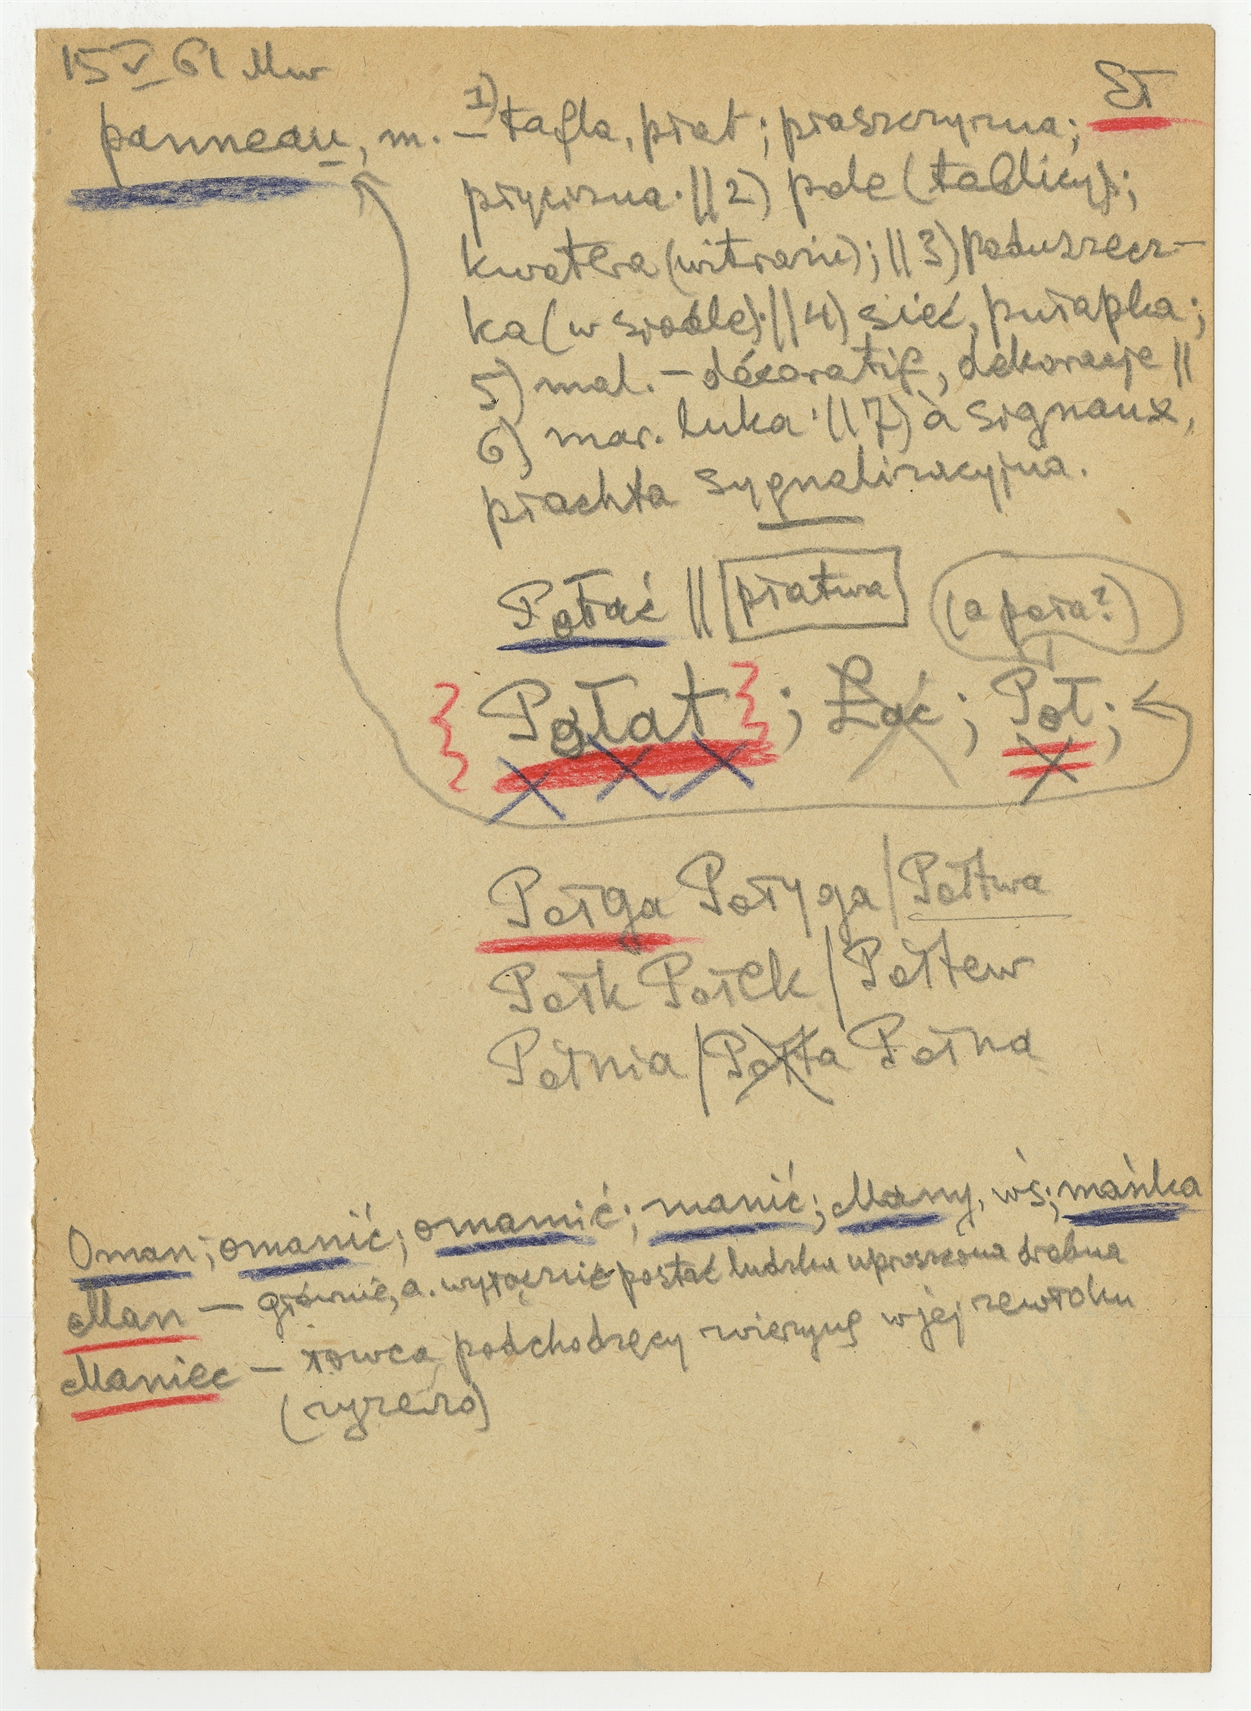 15 V 61 Mw
Sł
panneau, m. – 1) tafla, płat; płaszczyzna;
płycizna. || 2) pole (tablicy);
kwatera (witraży); || 3) poduszecz-
ka (w siodle). || 4) sieć, pułapka;
5) mal. – décoratif, dekoracje ||
6) mar. luka. || 7) à signaux,
płachta sygnalizacyjna.
Połać || płatwa (a poła?)
Połat; Łać; Poł;
Połga Połyga / Połtwa
Połk Połek / Połtew
Połnia / Połta Połna
Oman; omanić; omamić; manić; Many, wś; mańka
Man – głównie, a. wyłącznie postać ludzka uproszczona drobna
Maniec – łowca, podchodzący zwierzynę w jej zewłoku